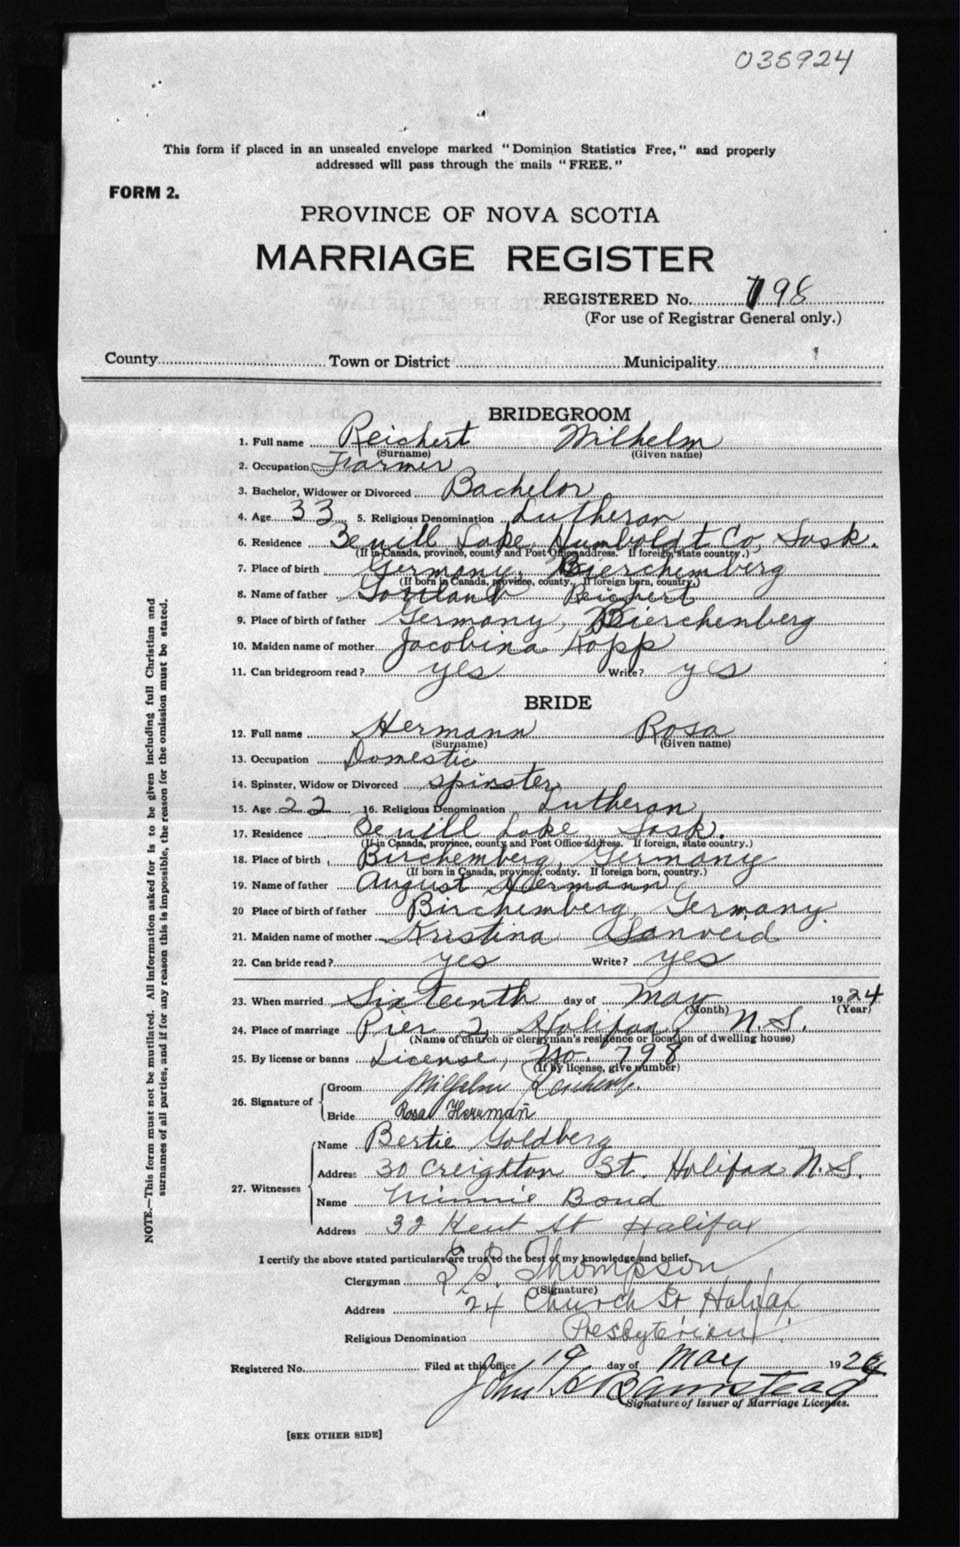 035924
This form if placed in an unsealed envelope marked "Dominion Statistics Free," and properly
addressed will pass through the mails "FREE."
FORM 2.
PROVINCE OF NOVA SCOTIA
MARRIAGE REGISTER
REGISTERED No. 798
(For use of Registrar General only.)
County Town or District Municipality
BRIDEGROOM
1. Full name Reichert Wilhelm
(Surname) (Given name)
2. Occupation Farmer
3. Bachelor, Widower or Divorced Bachelor
4. Age 33 5. Religious Denomination Lutheran
6. Residence Lake, Humboldt Co, Sask.
(If in Canada, province, county and Post Office address. If foreign, state country.)
7. Place of birth Germany, Bierchemberg
(If born in Canada, province, county. If foreign born, country.)
8. Name of father Reichert
9. Place of birth of father Germany, Bierchenberg
10. Maiden name of mother Jacobina Kopp
11. Can bridegroom read? yes Write? yes
BRIDE
12. Full name Hermann Rosa
(Surname) (Given name)
13. Occupation Domestic
14. Spinster, Widow or Divorced spinster
15. Age 22 16. Religious Denomination Lutheran
17. Residence Lake Sask.
(If in Canada, province, county and Post Office address. If foreign, state country.)
18. Place of birth Birchemberg, Germany
(If born in Canada, province, county. If foreign born, country.)
19. Name of father August Hermann
20 Place of birth of father Birchemberg, Germany.
21. Maiden name of mother Kristina
22. Can bride read? yes Write? yes
23. When married Sixteenth day of May 1924
(Month) (Year)
24. Place of marriage Pier 2, Halifax, N.S.
(Name of church or clergyman's residence or location of dwelling house)
25. By license or banns License, No. 798
(If by license, give number)
26. Signature of Groom Wilhelm
Bride Rosa Herrmañ
27. Witnesses Name Bertie Goldberg
Address 30 Creighton St. Halifax N.S.
Name Minnie Bond
Address 32 Kent St Halifax
I certify the above stated particulars are true to the best of my knowledge and belief.
Clergyman Thompson
(Signature)
Address 24 Church St Halifax
Religious Denomination Presbyterian
Registered No. Filed at this office 19 day of May 1924
John H Barnstead
Signature of Issuer of Marriage Licenses.
[SEE OTHER SIDE]
NOTE.—This form must not be mutilated. All information asked for is to be given including full Christian and
surnames of all parties, and if for any reason this is impossible, the reason for the omission must be stated.